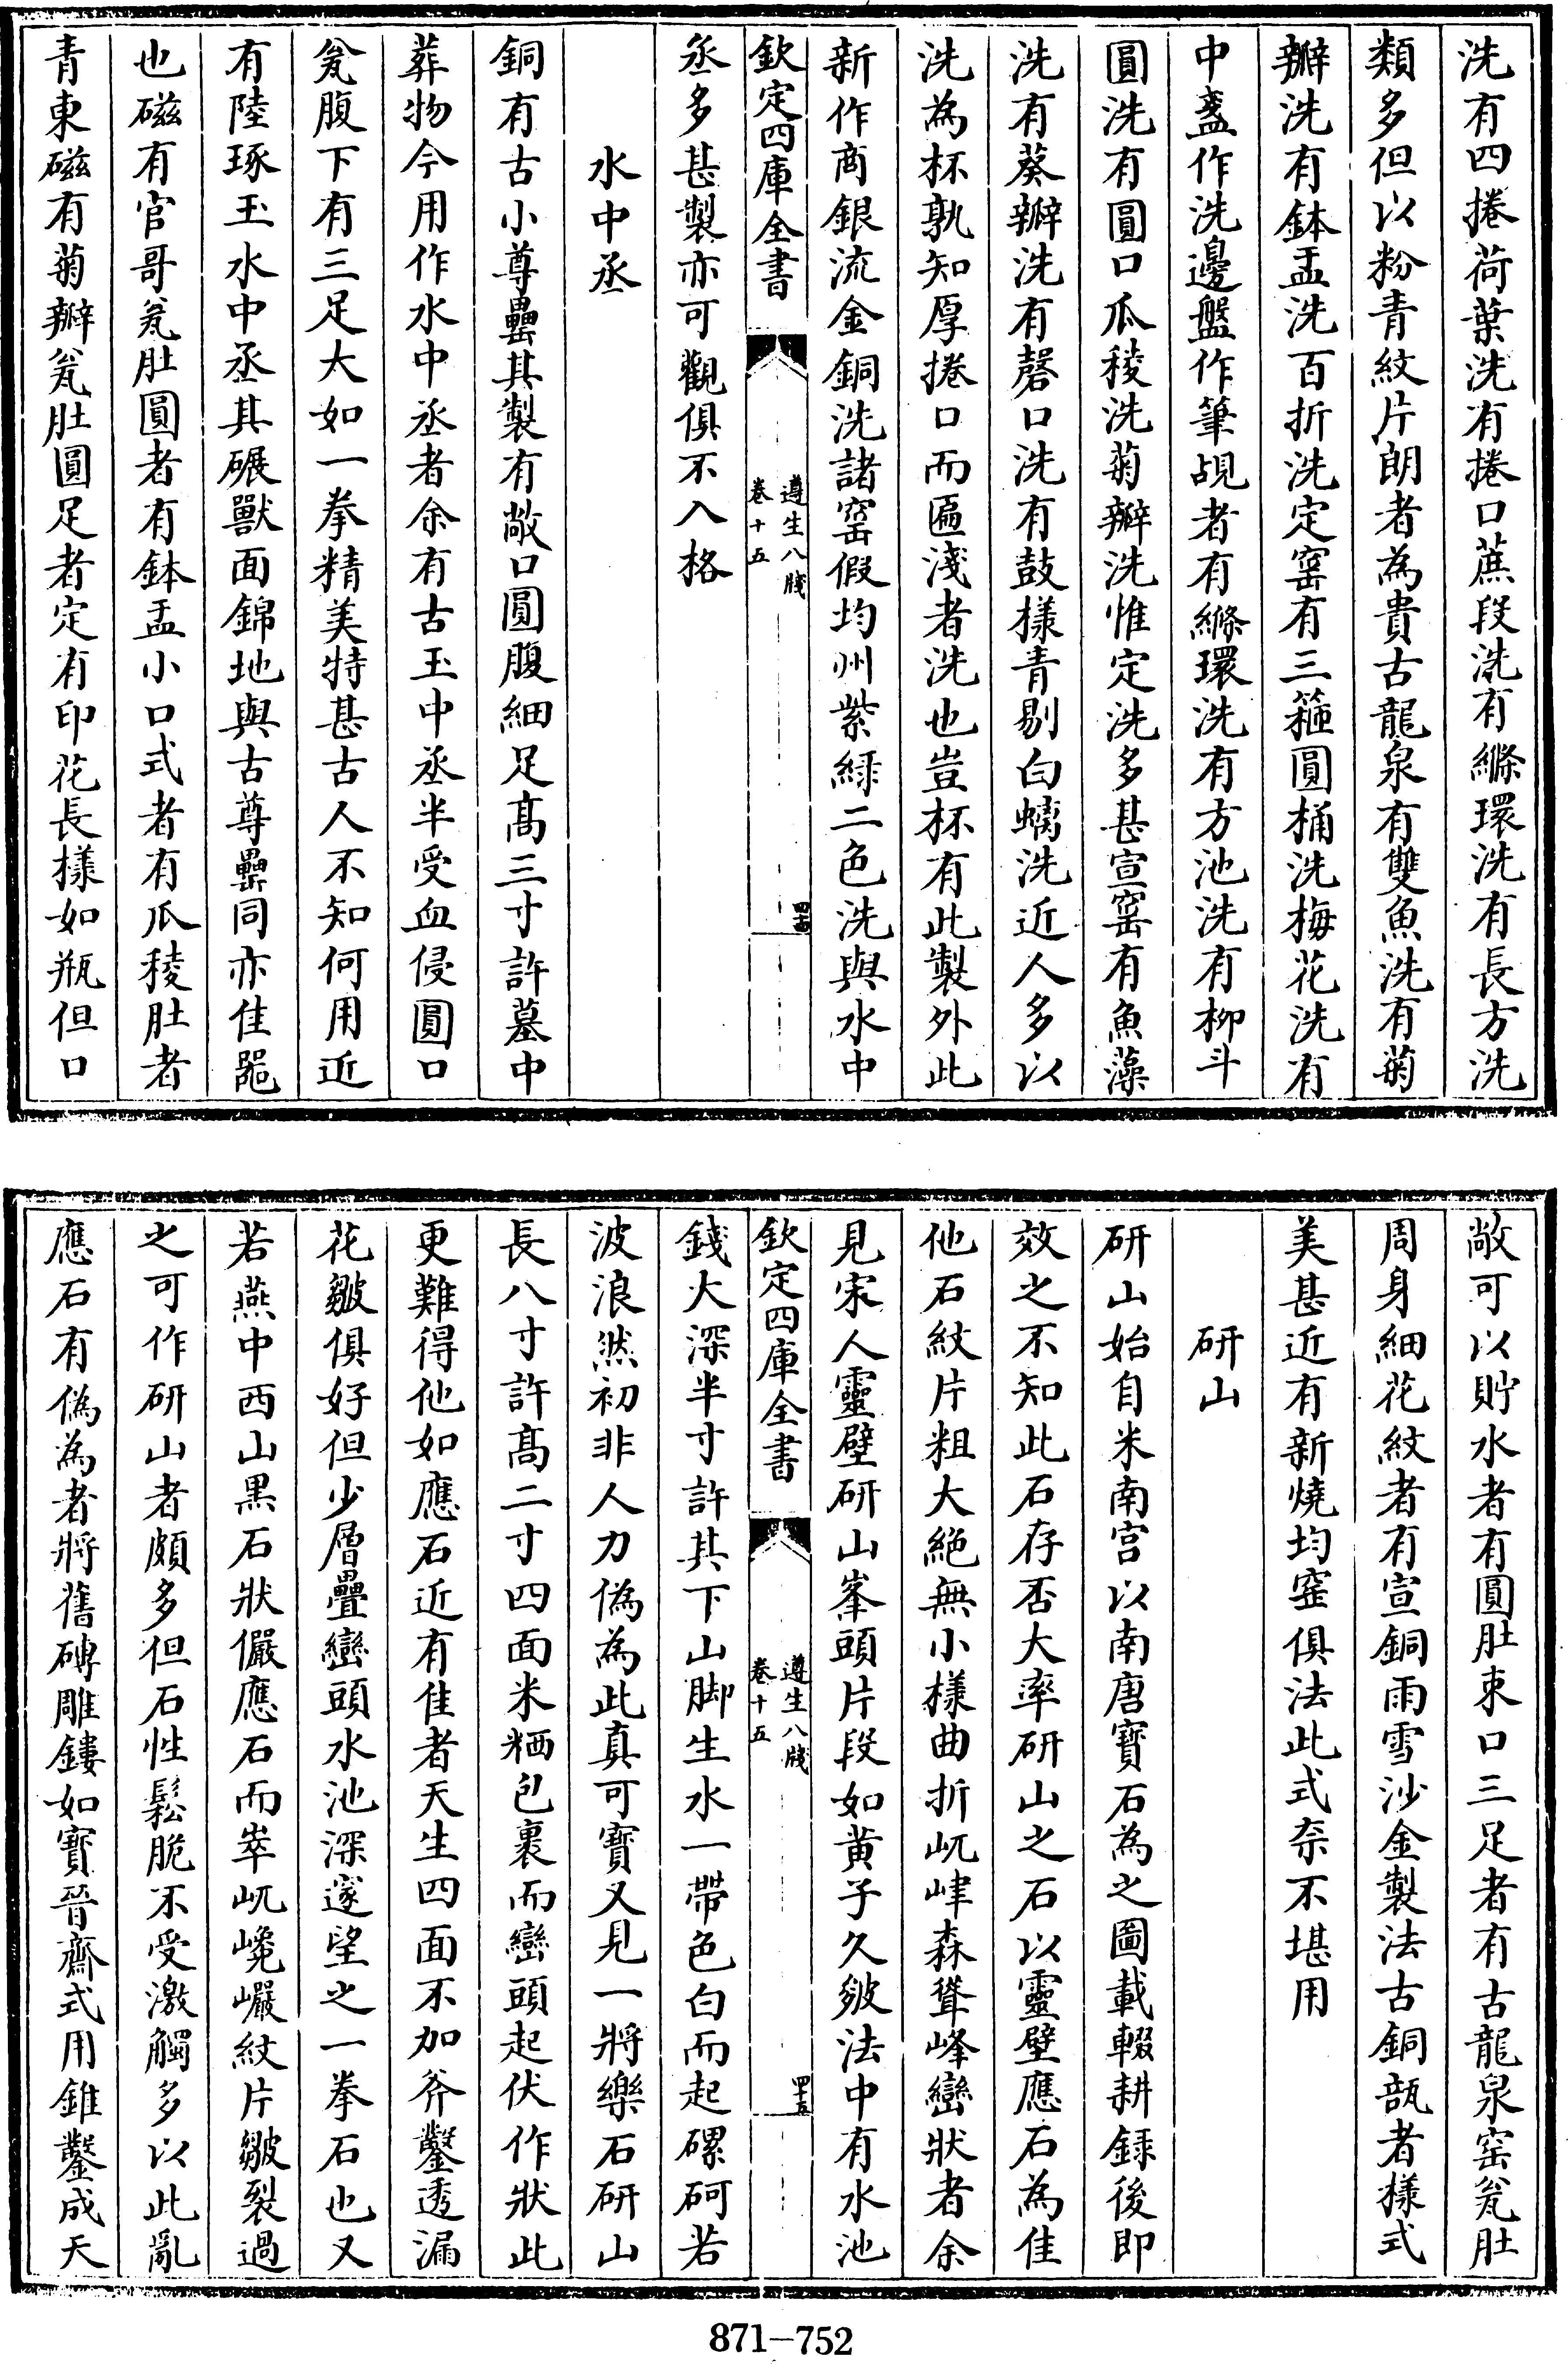 洗有四捲荷葉洗有捲口蔗段洗有縧環洗有長方洗
類多但以粉青紋片朗者為貴古龍泉有雙魚洗有菊
瓣洗有鉢盂洗百折洗定窑有三箍圓桶洗梅花洗有
中盞作洗邊盤作筆覘者有縧環洗有方池洗有柳斗
圓洗有圓口瓜稜洗菊瓣洗惟定洗多甚宣窑有魚藻
洗有葵瓣洗有磬口洗有鼓樣青剔白螭洗近人多以
洗為杯孰知厚捲口而匾淺者洗也豈杯有此製外此
新作商銀流金銅洗諸窑假均州紫綠二色洗與水中
欽定四庫全書
遵生八牋
卷十五
四十四
丞多甚製亦可觀俱不入格
水中丞
銅有古小尊罍其製有敞口圓腹細足髙三寸許墓中
葬物今用作水中丞者余有古玉中丞半受血侵圓口
瓮腹下有三足大如一拳精美特甚古人不知何用近
有陸琢玉水中丞其碾獸面錦地與古尊罍同亦佳噐
也磁有官哥瓮肚圓者有鉢盂小口式者有瓜稜肚者
青東磁有菊瓣瓮肚圓足者定有印花長樣如瓶但口
敞可以貯水者有圓肚束口三足者有古龍泉窑瓮肚
周身細花紋者有宣銅雨雪沙金製法古銅瓿者樣式
美甚近有新燒均窑俱法此式奈不堪用
研山
研山始自米南宫以南唐寳石為之圖載輟耕録後即
效之不知此石存否大率研山之石以靈壁應石為佳
他石紋片粗大絶無小樣曲折屼峍森聳峰巒狀者余
見宋人靈壁研山峯頭片段如黄子久皴法中有水池
欽定四庫全書
遵生八牋
卷十五
四十五
錢大深半寸許其下山脚生水一帶色白而起磥砢若
波浪然初非人力偽為此真可寳又見一將樂石研山
長八寸許髙二寸四面米粞包裹而巒頭起伏作狀此
更難得他如應石近有佳者天生四面不加斧鑿透漏
花皺俱好但少層疊巒頭水池深邃望之一拳石也又
若燕中西山黒石狀儼應石而崒屼巉巗紋片皺裂過
之可作研山者頗多但石性鬆脆不受激觸多以此亂
應石有偽為者將舊磚雕鏤如寳晉齋式用錐鑿成天
871—752